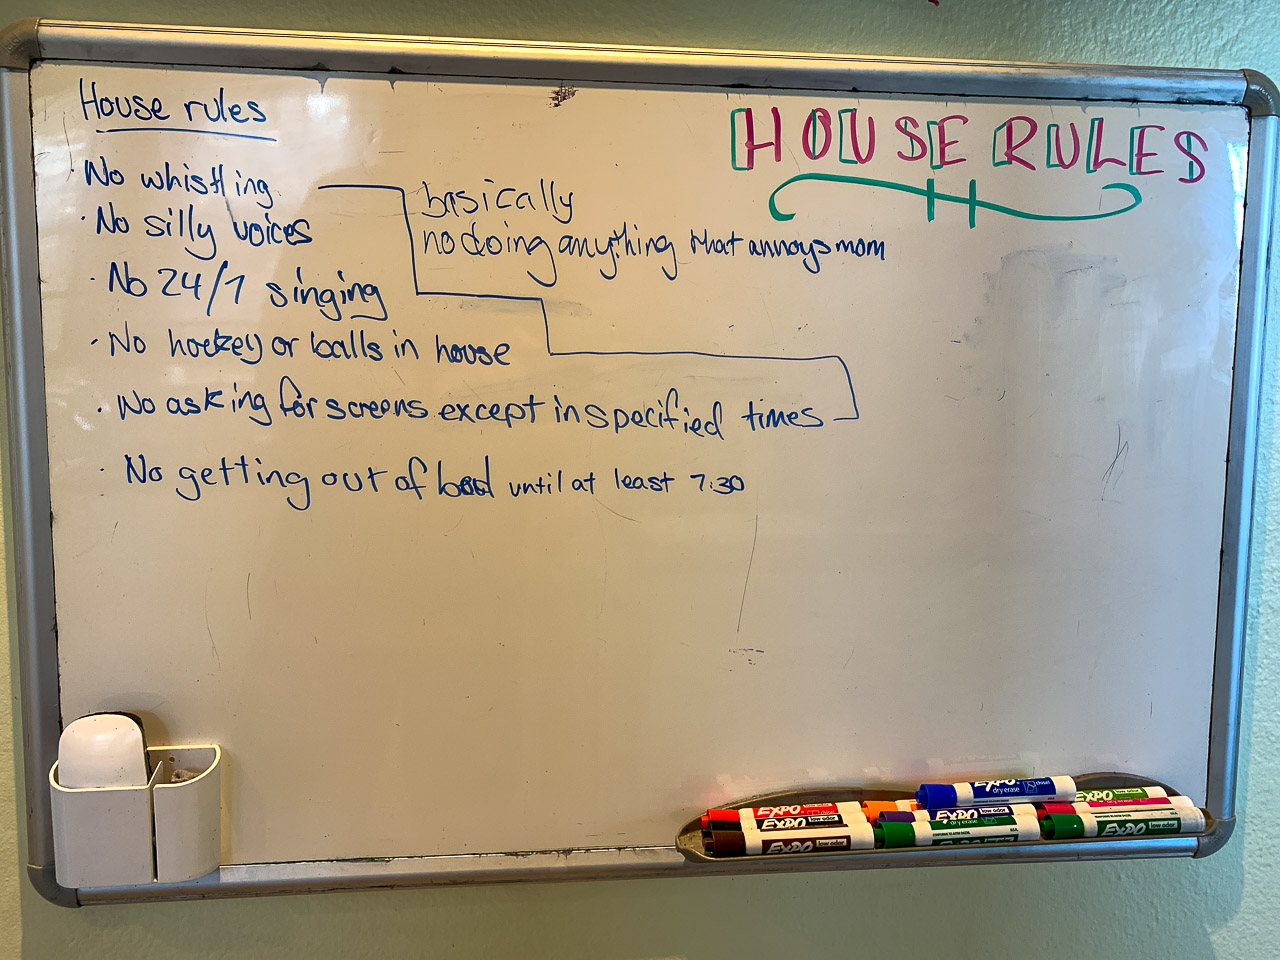 House rules
HOUSE RULES
No whistling
· No silly voices
· No 24/7 singing
· No hockey or balls in house
· No asking for screens except in specified times
· No getting out of bed until at least 7:30
basically
no doing anything that annoys mom
EXPO
low odor
EXPO low odor
EXPO low odor
EXPO
dry erase
chisel
EXPO
dry erase
EXPO
EXPO
EXPO low odor